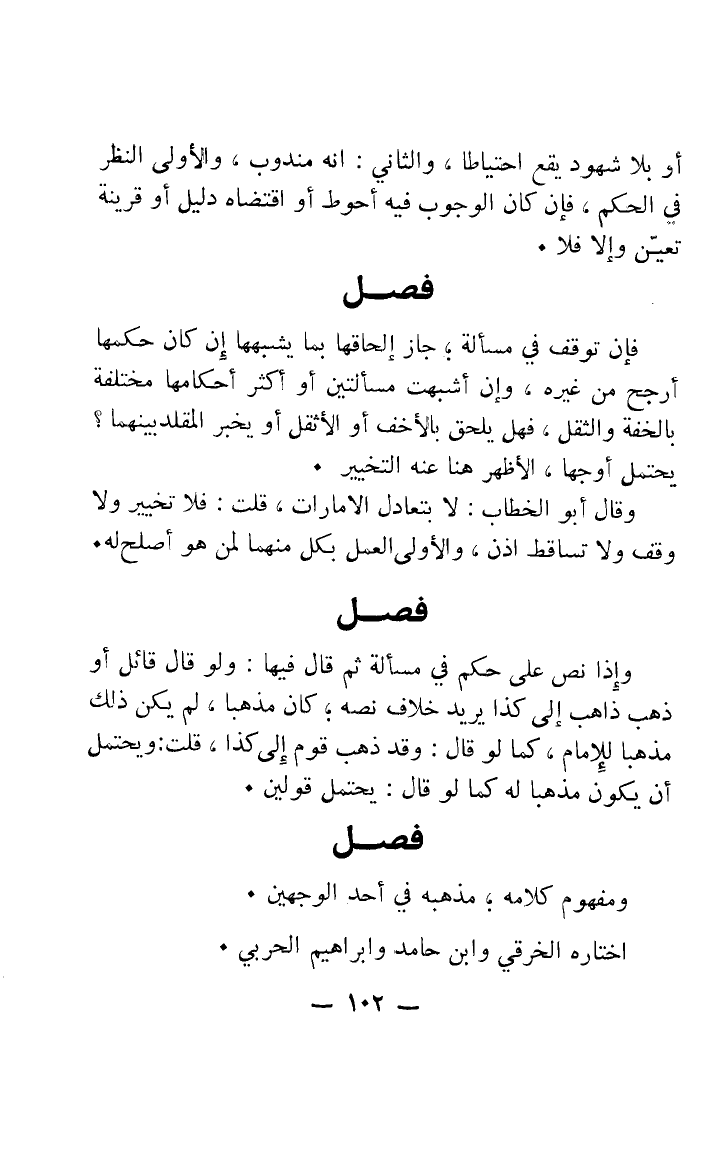 أو بلا شهود يقع احتياطا ، والثاني : انه مندوب ، والأولى النظر
في الحكم ، فإن كان الوجوب فيه أحوط أو اقتضاه دليل أو قرينة
تعيّن وإلا فلا ٠
فصـــل
فإن توقف في مسألة ؛ جاز إلحاقها بما يشبهها إن كان حكمها
أرجح من غيره ، وإن أشبهت مسألتين أو أكثر أحكامها مختلفة
بالخفة والثقل ، فهل يلحق بالأخف أو الأثقل أو يخبر المقلد بينهما ؟
يحتمل أوجها ، الأظهر هنا عنه التخيير ٠
وقال أبو الخطاب : لا بتعادل الامارات ، قلت : فلا تخيير ولا
وقف ولا تساقط اذن ، والأولى العمل بكل منهما لمن هو أصلح له٠
فصـــل
وإذا نص على حكم في مسألة ثم قال فيها : ولو قال قائل أو
ذهب ذاهب إلى كذا يريد خلاف نصه ؛ كان مذهبا ، لم يكن ذلك
مذهبا للإمام ، كما لو قال : وقد ذهب قوم إلى كذا ، قلت: ويحتمل
أن يكون مذهبا له كما لو قال : يحتمل قولين ٠
فصـــل
ومفهوم كلامه ؛ مذهبه في أحد الوجهين ٠
اختاره الخرقي وابن حامد وابراهيم الحربي ٠
— ١٠٢ —